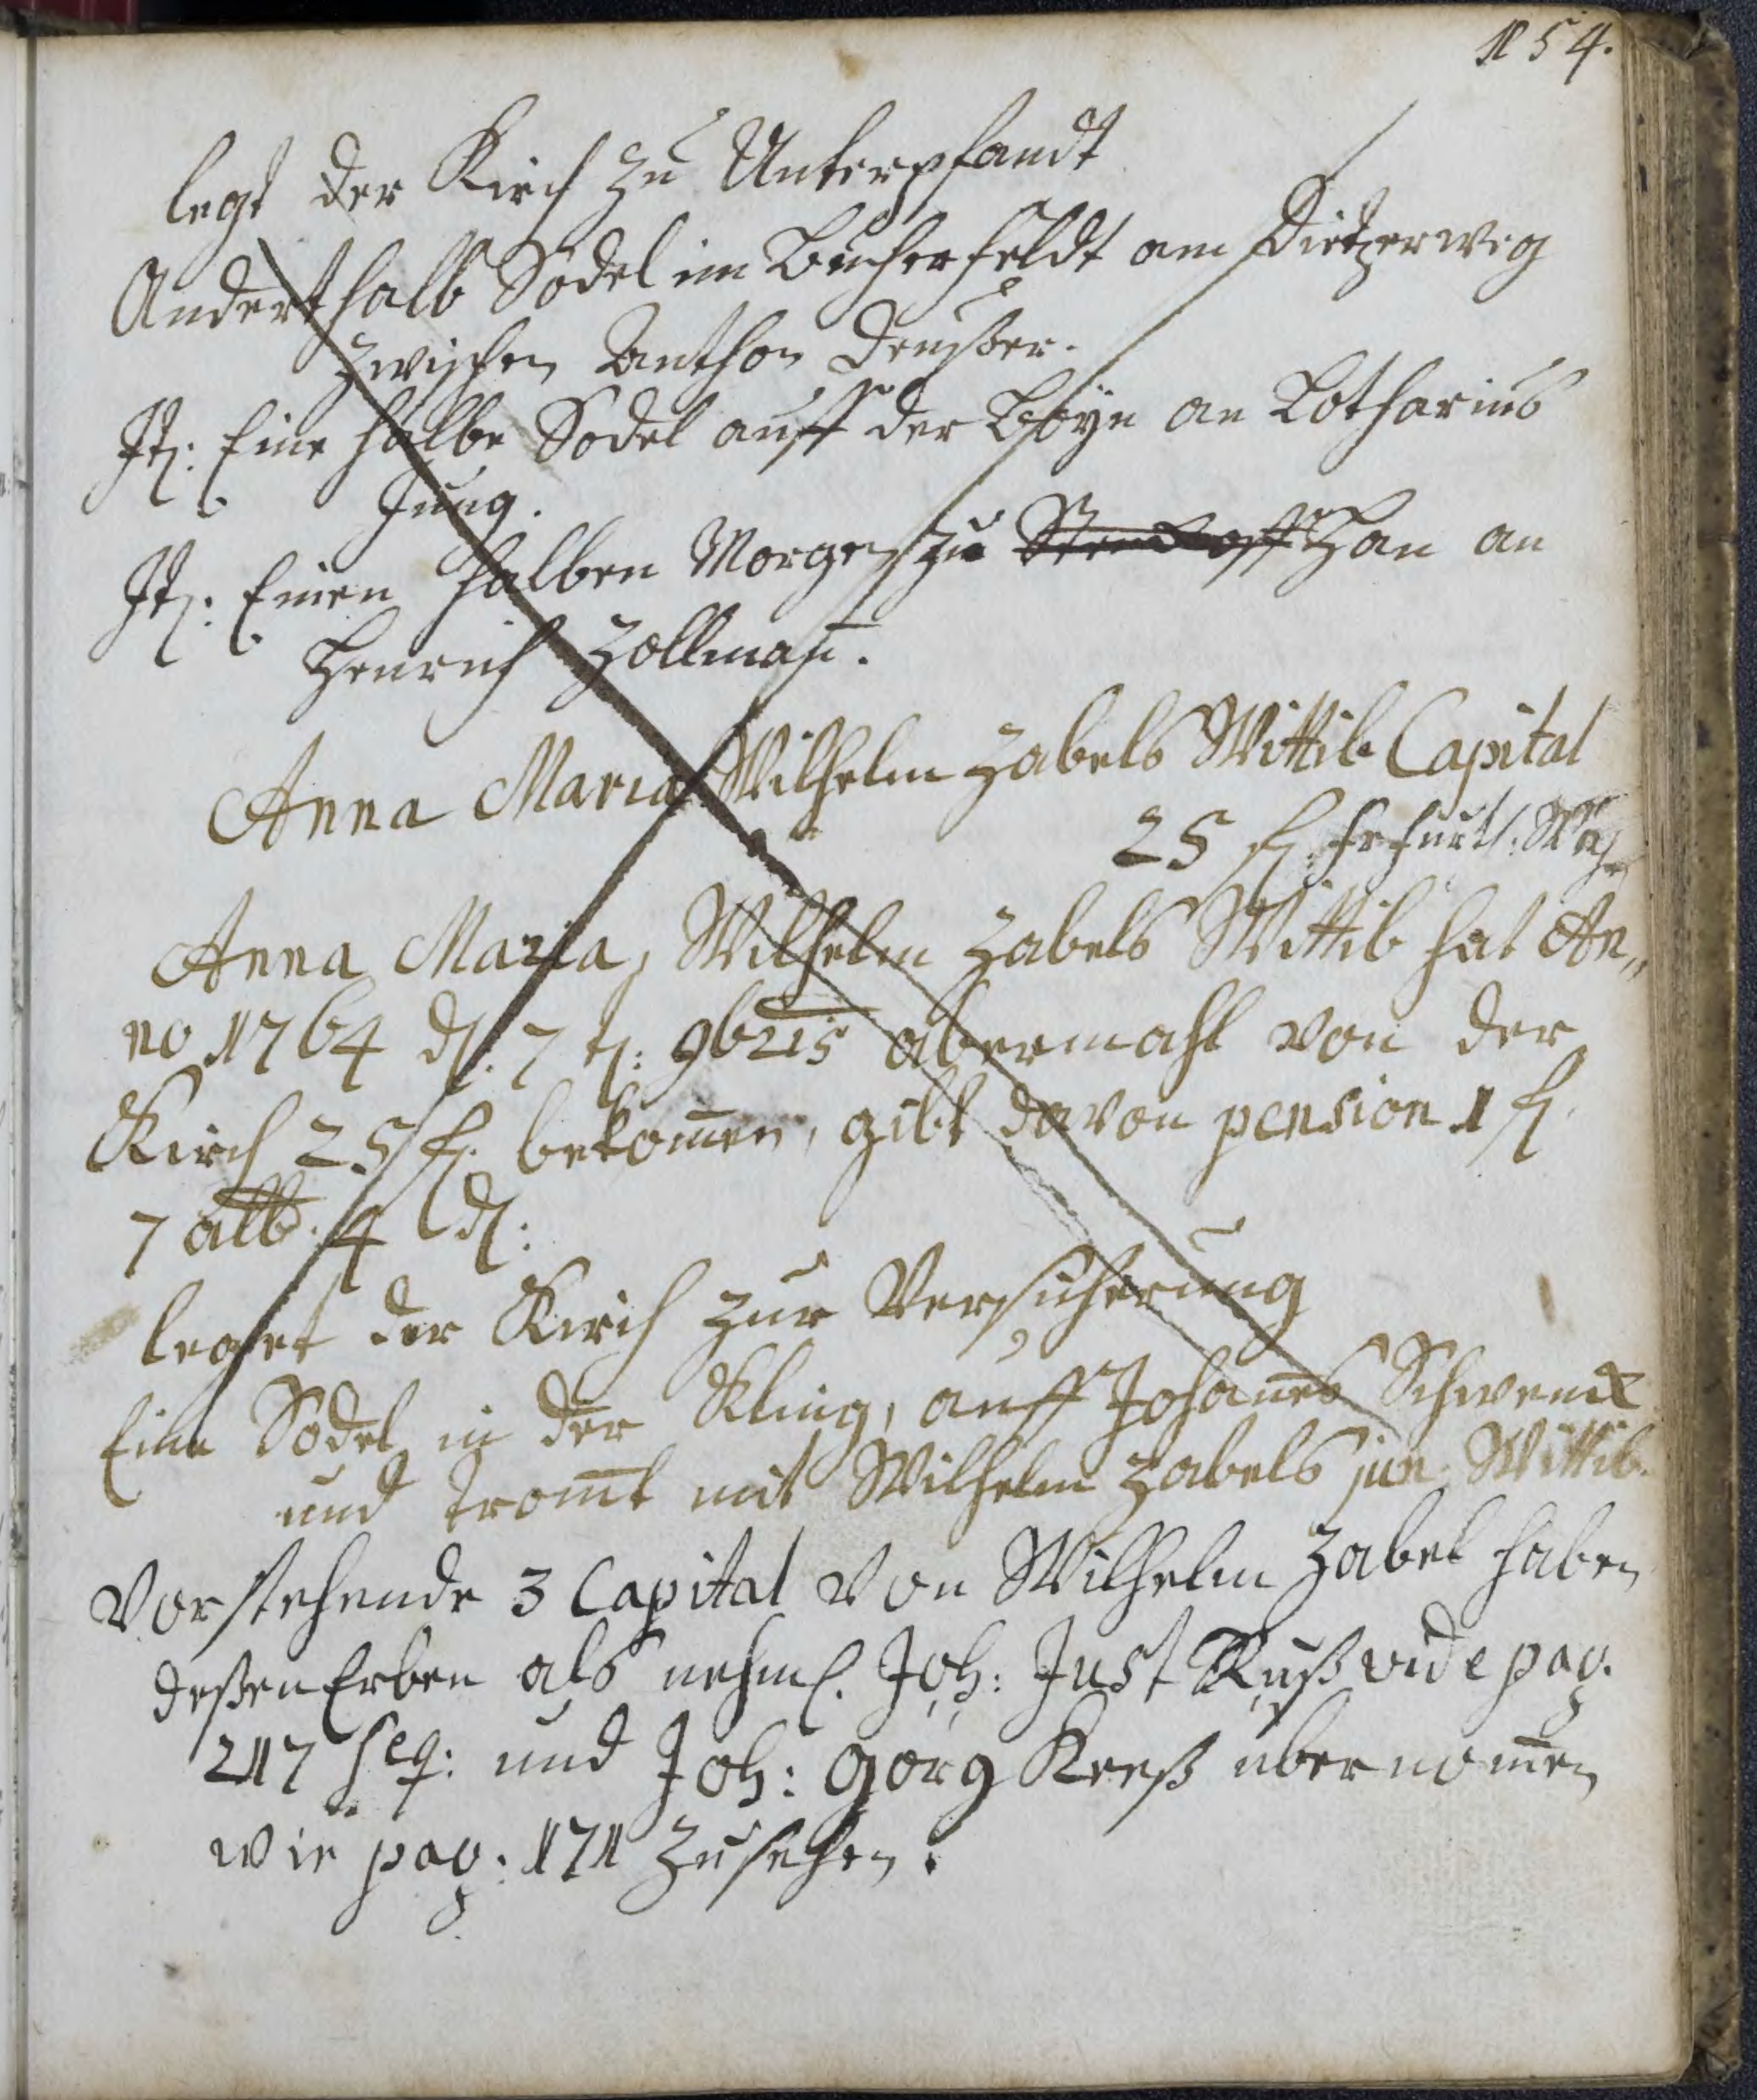 154.
legt der Kirch zu Unterpfandt
Anderthalb Sodel im Bucherfeldt am Dietzerweg
zwischen Anthon Deußer.
It: Eine halbe Sodel auff der an Lotharius
Jung.
It: Einen halben Morgen zu Han an
Henrich Zollman̄.
Anna Maria Wilhelm Zabels Wittib Capital
25 fl
Anna Maria, Wilhelm Zabels Wittib hat An„
no 1764 d: 7 t: 9bris abermahl von der
Kirch 25 fl. bekom̄en, gibt davon pension 1 fl
7 alb. 4 d:
leget der Kirch zur Versicherung
Eine Sodel in der Kling, auff Johan̄es Schwenck
und trom̄t mit Wilhelm Zabels jun. Wittib.
Vorstehende 3 Capital von Wilhelm Zabel haben
deßen Erben als nehml. Joh: Just Ruß vide pag.
217 seq: und Joh: Görg Kreß übernom̄en
wie pag: 171 zusehen.